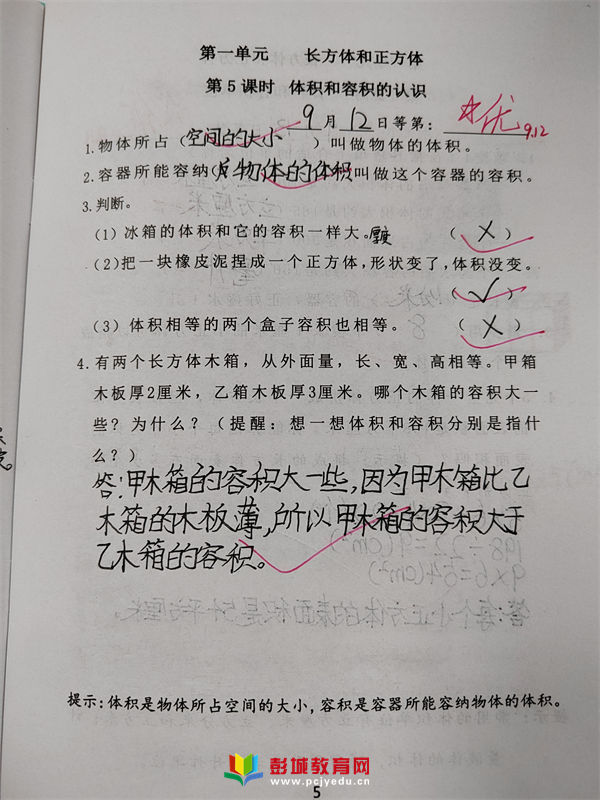 第一单元 长方体和正方体
第5课时 体积和容积的认识
9月12日等第：优 9.12
1.物体所占（空间的大小）叫做物体的体积。
2.容器所能容纳（物体的体积叫做这个容器的容积。
3.判断。
（1）冰箱的体积和它的容积一样大。厚度 （×）
（2）把一块橡皮泥捏成一个正方体，形状变了，体积没变。
（√）
（3）体积相等的两个盒子容积也相等。（×）
4.有两个长方体木箱，从外面量，长、宽、高相等。甲箱
木板厚2厘米，乙箱木板厚3厘米。哪个木箱的容积大一
些？为什么？（提醒：想一想体积和容积分别是指什
么？）
答：甲木箱的容积大一些，因为甲木箱比乙
木箱的木板薄，所以甲木箱的容积大于
乙木箱的容积。
提示：体积是物体所占空间的大小，容积是容器所能容纳物体的体积。
彭城教育网
www.pcjyedu.cn
5